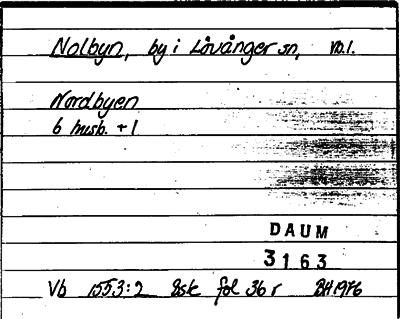 Nolbyn, by i Lövånger sn, vb.l.
Nordbyen
6 husb. + 1
DAUM
3163
Vb 1553:2 Bsk fol 36 r BH 1976